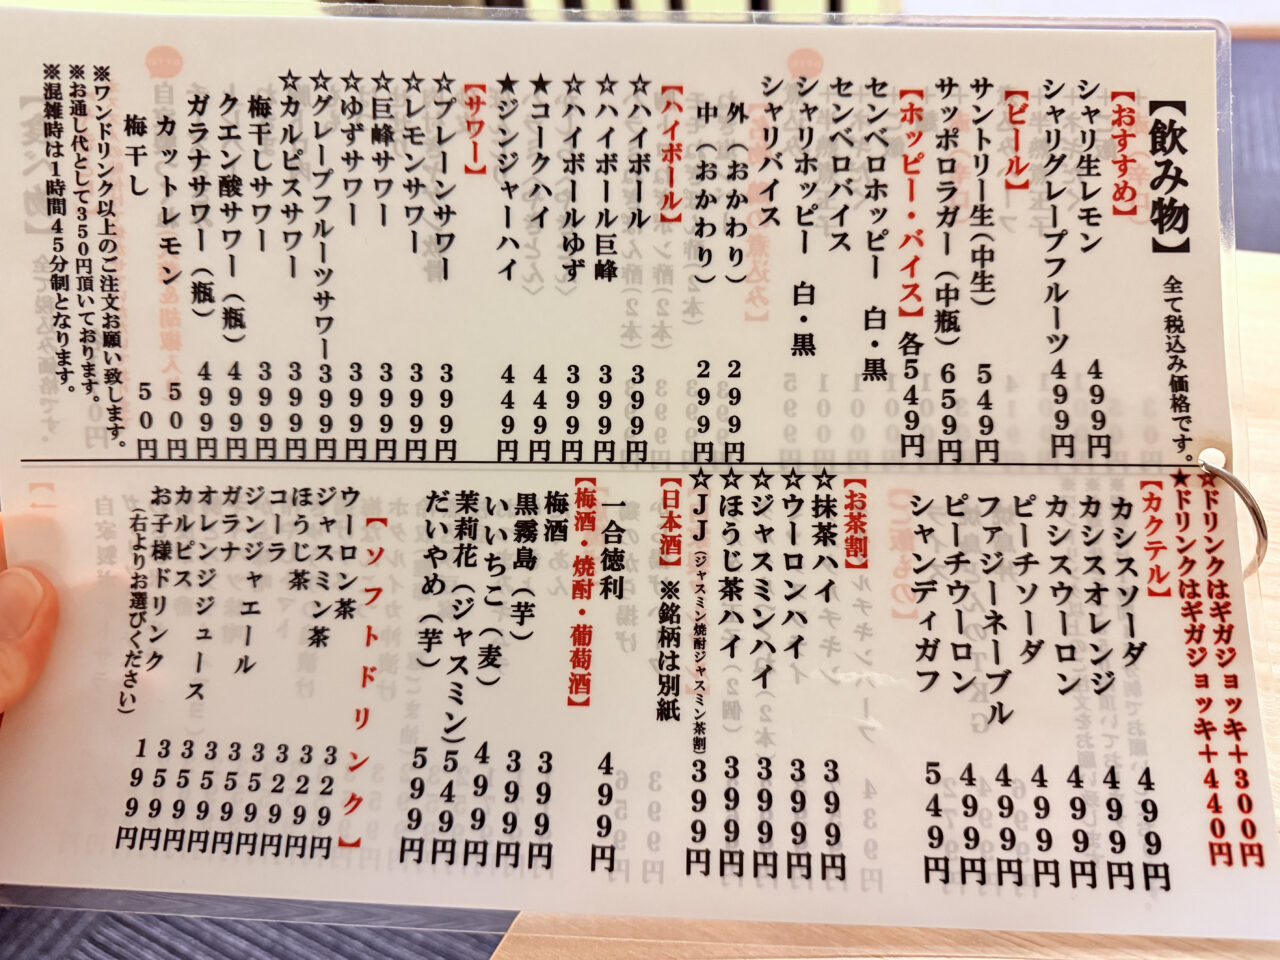 【飲み物】 全て税込み価格です。
【おすすめ】
シャリ生レモン 499円
シャリグレープフルーツ 499円
【ビール】
サントリー生(中生) 549円
サッポロラガー(中瓶) 659円
【ホッピー・バイス】各549円
センベロホッピー 白・黒
センベロバイス
シャリホッピー 白・黒
シャリバイス
外(おかわり) 299円
中(おかわり) 299円
【ハイボール】
☆ハイボール 399円
☆ハイボール巨峰 399円
☆ハイボールゆず 399円
★コークハイ 449円
★ジンジャーハイ 449円
【サワー】
☆プレーンサワー 399円
☆レモンサワー 399円
☆巨峰サワー 399円
☆ゆずサワー 399円
☆グレープフルーツサワー 399円
☆カルピスサワー 399円
梅干しサワー 399円
クエン酸サワー(瓶) 499円
ガラナサワー(瓶) 499円
カットレモン 50円
梅干し 50円
※ワンドリンク以上のご注文お願い致します。
※お通し代として350円頂いております。
※混雑時は1時間45分制となります。
☆ドリンクはギガジョッキ+300円
★ドリンクはギガジョッキ+440円
【カクテル】
カシスソーダ 499円
カシスオレンジ 499円
カシスウーロン 499円
ピーチソーダ 499円
ファジーネーブル 499円
ピーチウーロン 499円
シャンディガフ 549円
【お茶割】
☆抹茶ハイ 399円
☆ウーロンハイ 399円
☆ジャスミンハイ 399円
☆ほうじ茶ハイ 399円
☆JJ(ジャスミン焼酎ジャスミン茶割) 399円
【日本酒】※銘柄は別紙
一合徳利 499円
【梅酒・焼酎・葡萄酒】
梅酒 399円
黒霧島(芋) 399円
いいちこ(麦) 499円
茉莉花(ジャスミン) 549円
だいやめ(芋) 599円
【ソフトドリンク】
ウーロン茶 329円
ジャスミン茶 329円
ほうじ茶 329円
コーラ 359円
ジンジャエール 359円
ガラナ 359円
オレンジジュース 359円
カルピス 359円
お子様ドリンク 199円
(右よりお選びください)